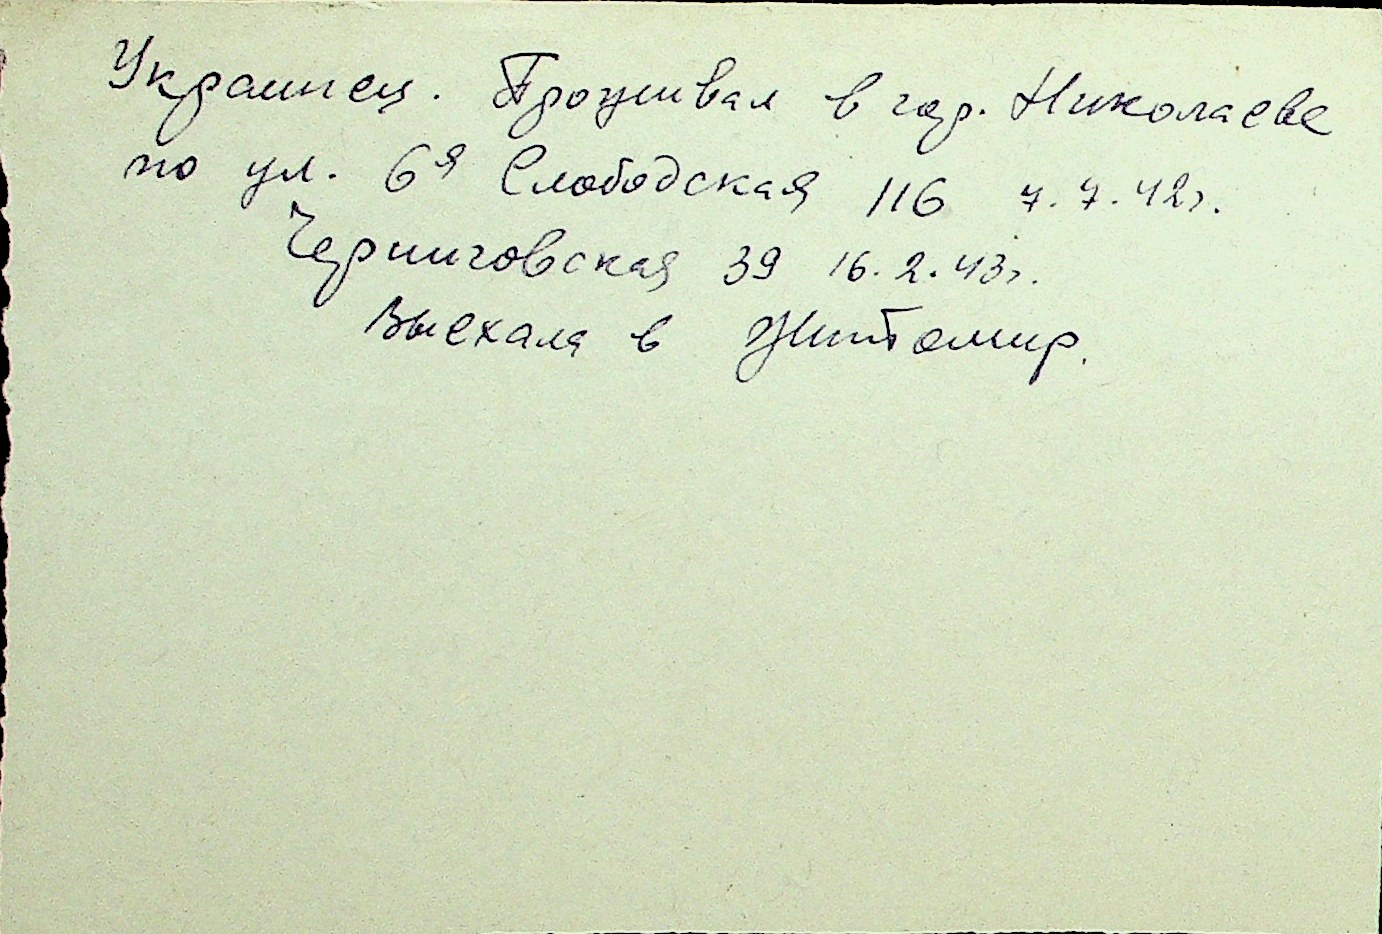 Украинец. Проживал в гор. Николаеве
по ул. 6я Слободская 116 7.7.42г.
Черниговская 39 16.2.43г.
Выехала в Житомир.